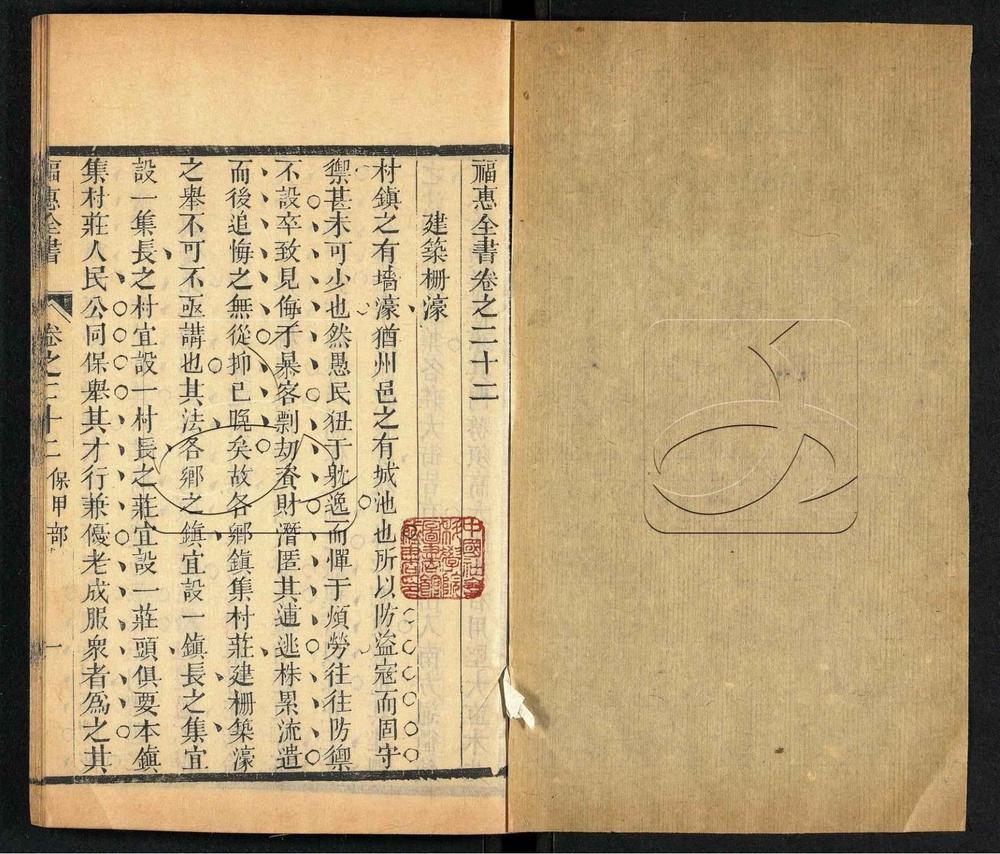 福惠全書卷之二十二
建築柵濠
村鎮之有墻濠猶州邑之有城池也所以防盜寇而固守
禦甚未可少也然愚民狃于躭逸而憚于煩勞往往防禦
不設卒致見侮矛暴客剽刧資財潛匿其逋逃株累流遺
而後追悔之無從抑已晚矣故各鄉鎮集村莊建柵築濠
之舉不可不亟講也其法各鄉之鎮宜設一鎮長之集宜
設一集長之村宜設一村長之莊宜設一莊頭俱要本鎮
集村莊人民公同保舉其才行兼優老成服衆者爲之其
福惠全書
卷之二十二
保甲部
一